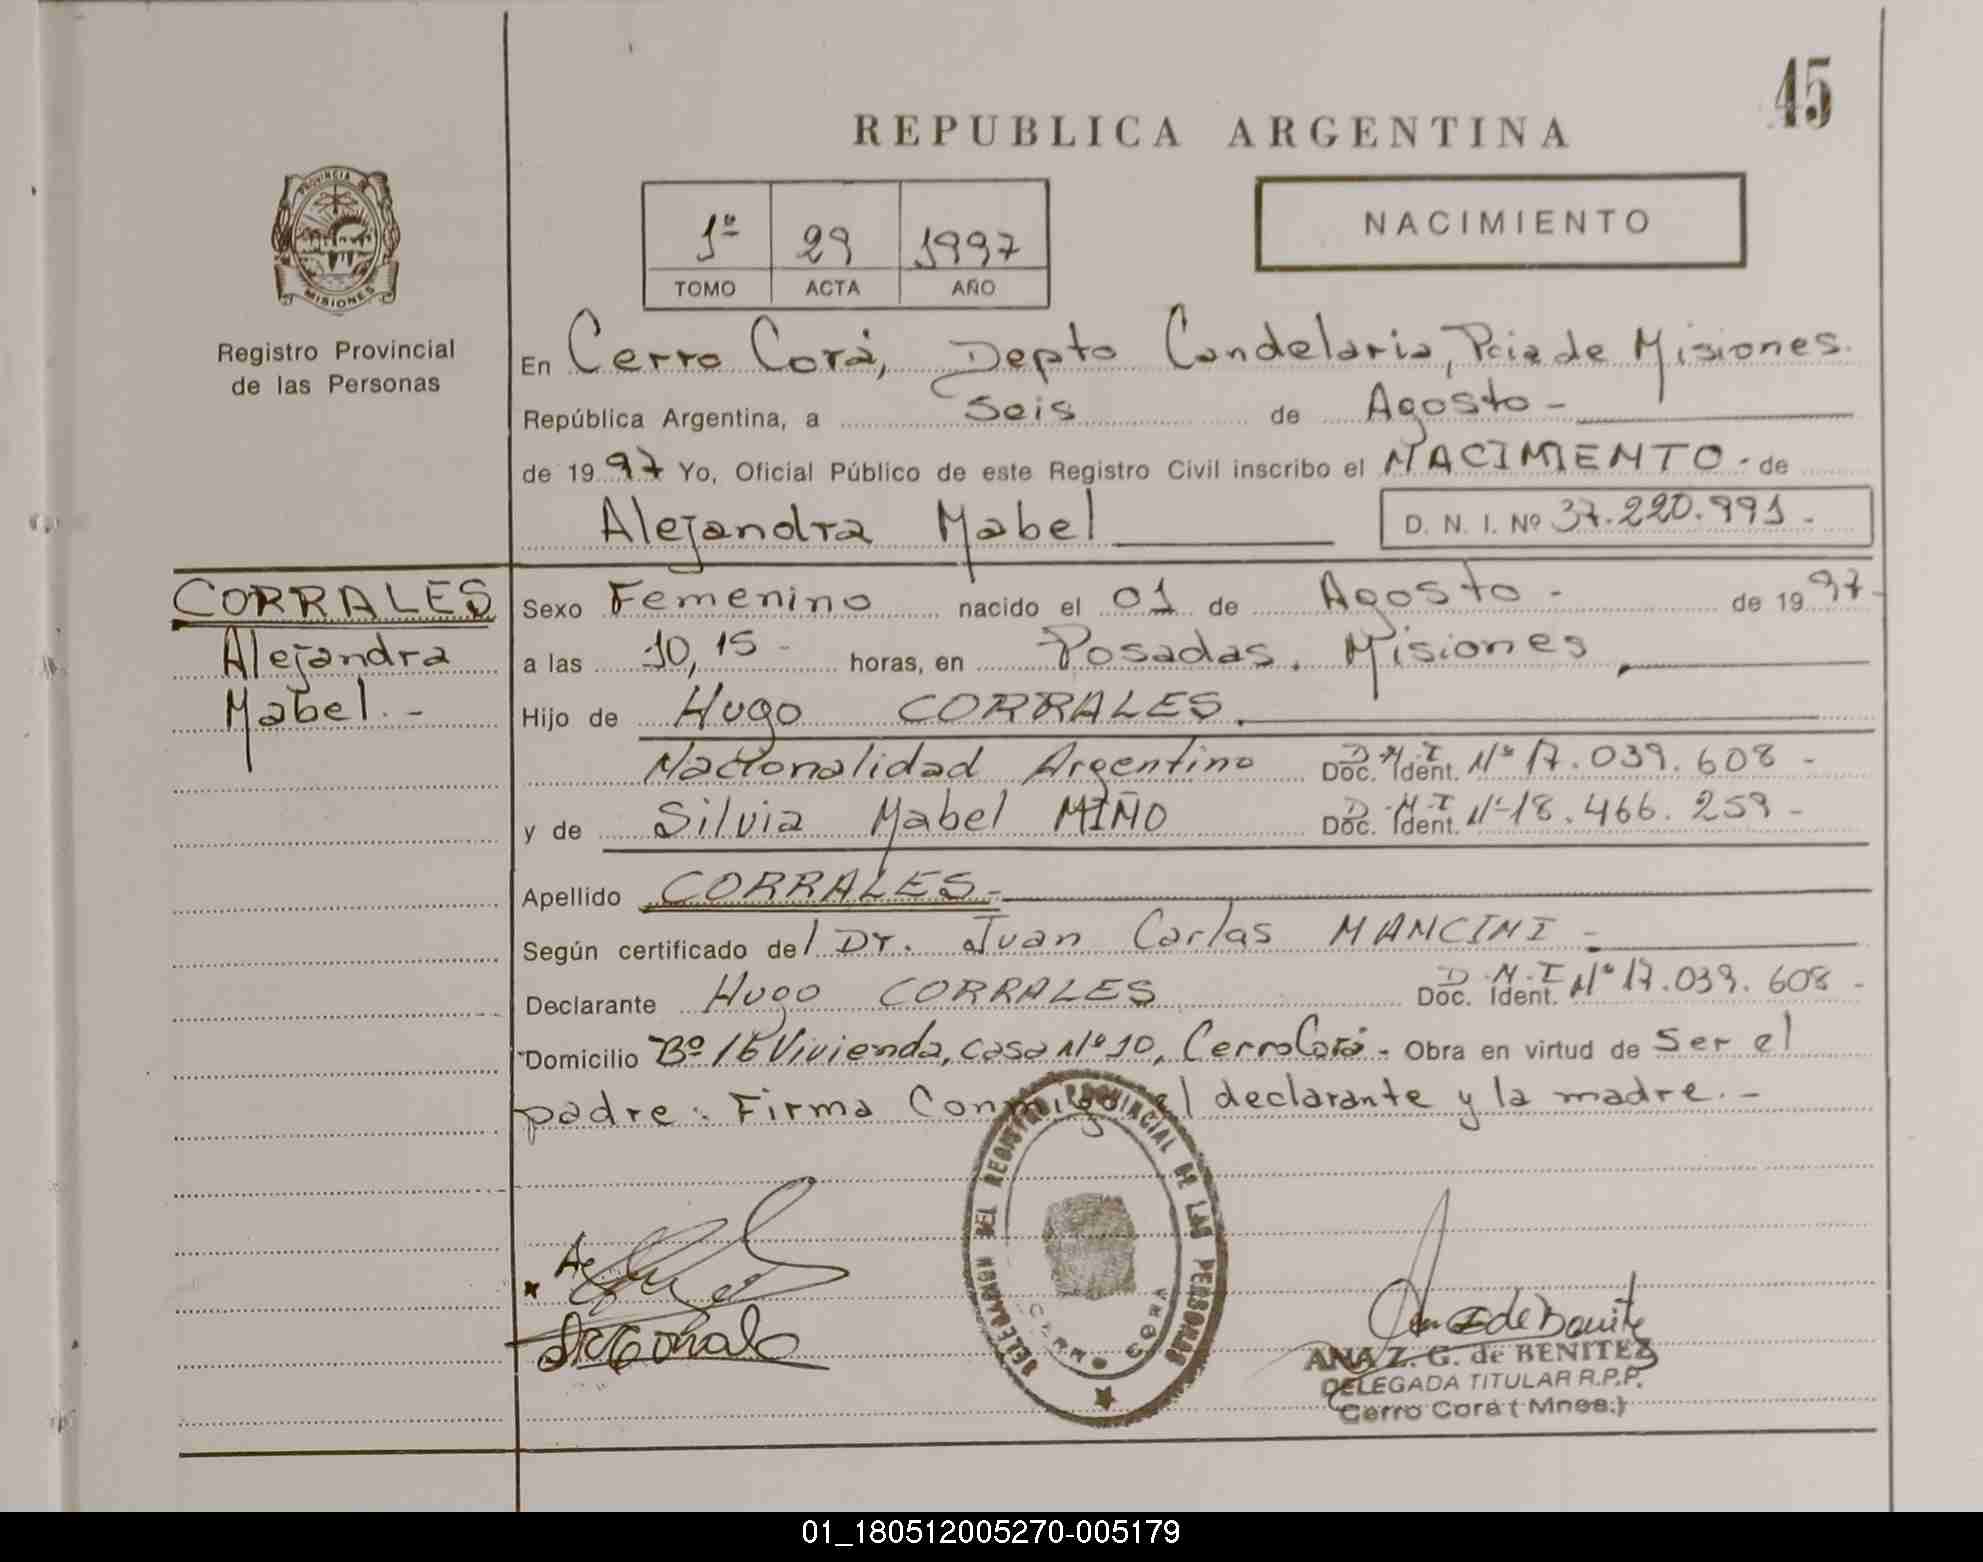 45
REPUBLICA ARGENTINA
PROVINCIA DE
MISIONES
Registro Provincial
de las Personas
NACIMIENTO
1º 29 1997
TOMO ACTA AÑO
En Cerro Corá, Depto Candelaria, Pcia de Misiones.
República Argentina, a Seis de Agosto -
de 1997 Yo, Oficial Público de este Registro Civil inscribo el NACIMIENTO - de
Alejandra Mabel D. N. I. Nº 37.220.991 -
CORRALES
Alejandra
Mabel. -
Sexo Femenino nacido el 01 de Agosto - de 1997 -
a las 10,15 - horas, en Posadas, Misiones
Hijo de Hugo CORRALES.
Nacionalidad Argentino D.N.I Doc. Ident. Nº 17.039.608 -
y de Silvia Mabel MIÑO D.N.I Doc. Ident. Nº 18.466.259 -
Apellido CORRALES -
Según certificado del Dr. Juan Carlos MANCINI -
Declarante Hugo CORRALES D.N.I Doc. Ident. Nº 17.039.608 -
Domicilio Bº 16 Vivienda, casa Nº 10, Cerro Corá - Obra en virtud de Ser el
padre. Firma Conmigo el declarante y la madre. -
DELEGACION DEL REGISTRO PROVINCIAL DE LAS PERSONAS
CERRO CORA
Ana de Benitez
ANA Z. G. de BENITEZ
DELEGADA TITULAR R.P.P.
Cerro Corá ( Mnes.)
01_180512005270-005179